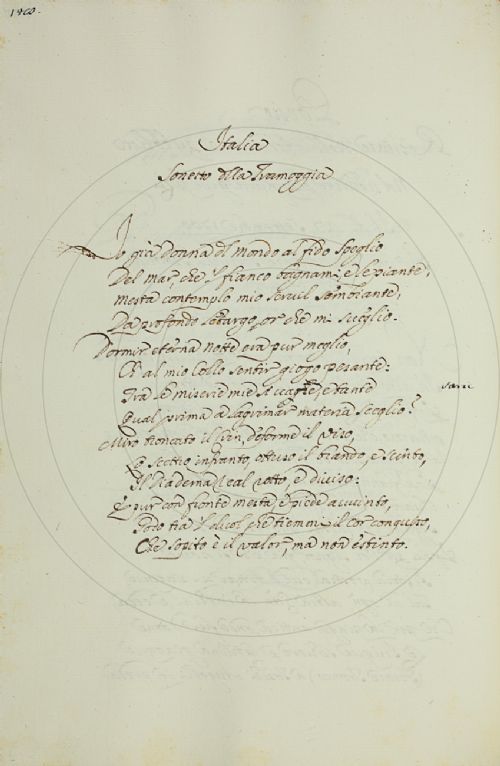 1400.
Italia
Sonetto della Tramoggia
Io già donna del mondo al fido speglio
Del mar, che 'l fianco bagnami, e le piante,
Mesta contemplo mio servil sembiante,
Da profondo letargo, or che mi sveglio.
Dormir eterna notte era pur meglio,
Ch' al mio collo sentir giogo pesante:
Tra le miserie mie sì e tante
varie
Qual prima a lagrimar materia sceglio?
Miro troncato il crin, deforme il viso,
Lo scettro infranto, ottuso il brando, e scinto,
Il Diadema real rotto, e diviso:
E pur con fronte mesta, e piede avvinto,
Godo tra 'l duol, che tiemmi il cor conquiso,
Che sopito è il valor, ma non estinto.